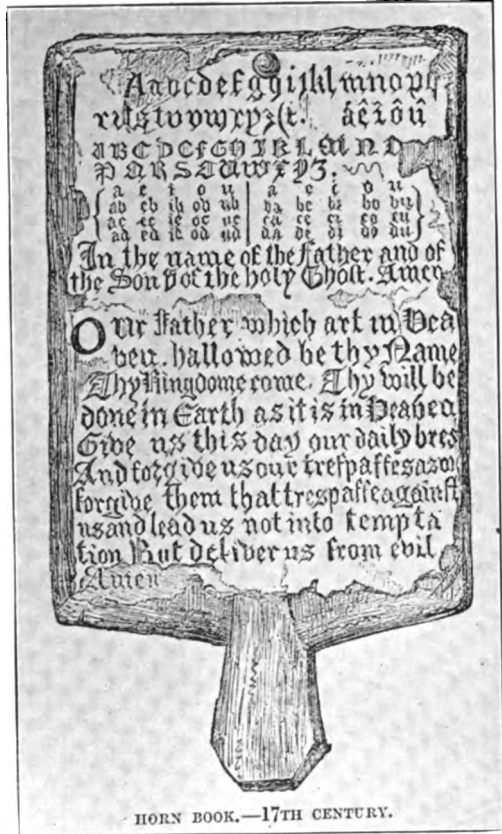 Aabcdefghijklmnopq
rſstuvwxyz&. áêîôû
ABCDEFGHIJKLMNO
PQRSTUWXYZ.
a e i o u | a e i o u
ab eb ib ob ub | ba be bi bo bu
ac ec ic oc uc | ca ce ci co cu
ad ed id od ud | da de di do du
In the name of the Father and of
the Son & of the holy Ghost. Amen
Our Father which art in Hea
ven. hallowed be thy Name
Thy Kingdome come. Thy will be
done in Earth as it is in Heaven
Give us this day our daily bred
And forgive us our treſpaſſes as we
forgive them that treſpaſſe againſt
us and lead us not into tempta
tion But deliver us from evil
Amen
HORN BOOK.—17TH CENTURY.